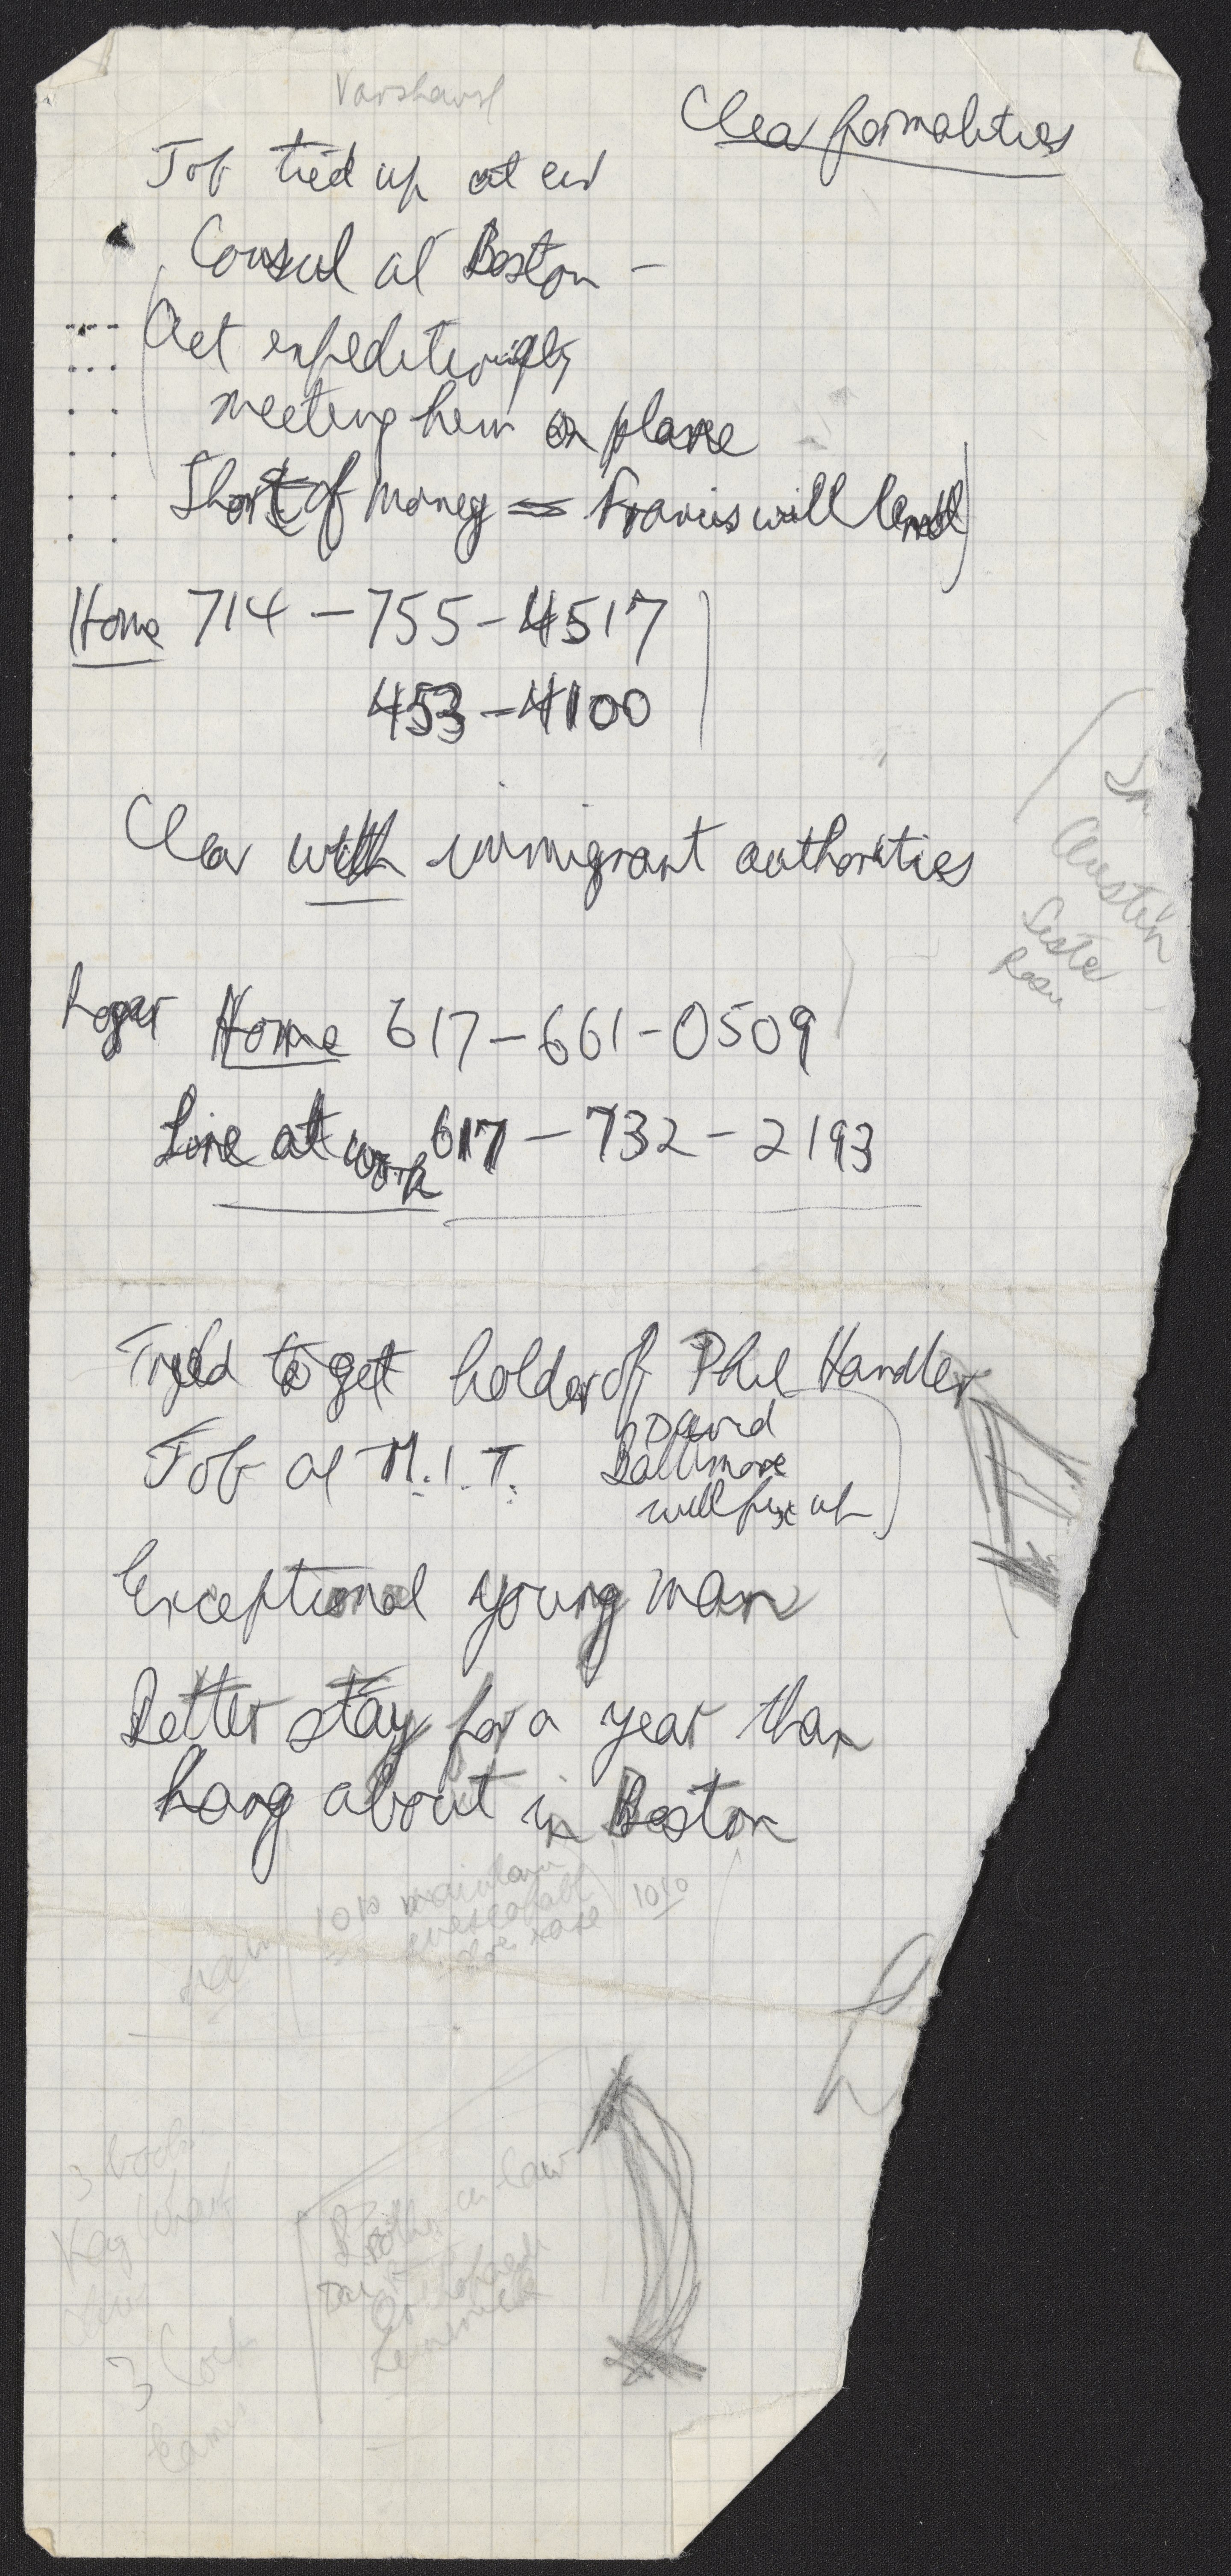 Varshavsk
Clear formalities
Job tied up at end
Consul at Boston –
Act expeditiously
meeting him on plane
Short of money = Francis will lend
Home 714 – 755 – 4517
453 – 4100
Clear with immigrant authorities
In
Austin
Sister
Roger Home 617 – 661 – 0509
Line at work 617 – 732 – 2193
Tried to get holder of Phil Handler
Job at M.I.T. David
Baltimore
will fix up
Exceptional young man
Better stay for a year than
hang about in Boston
1010
3
Brother in law
3